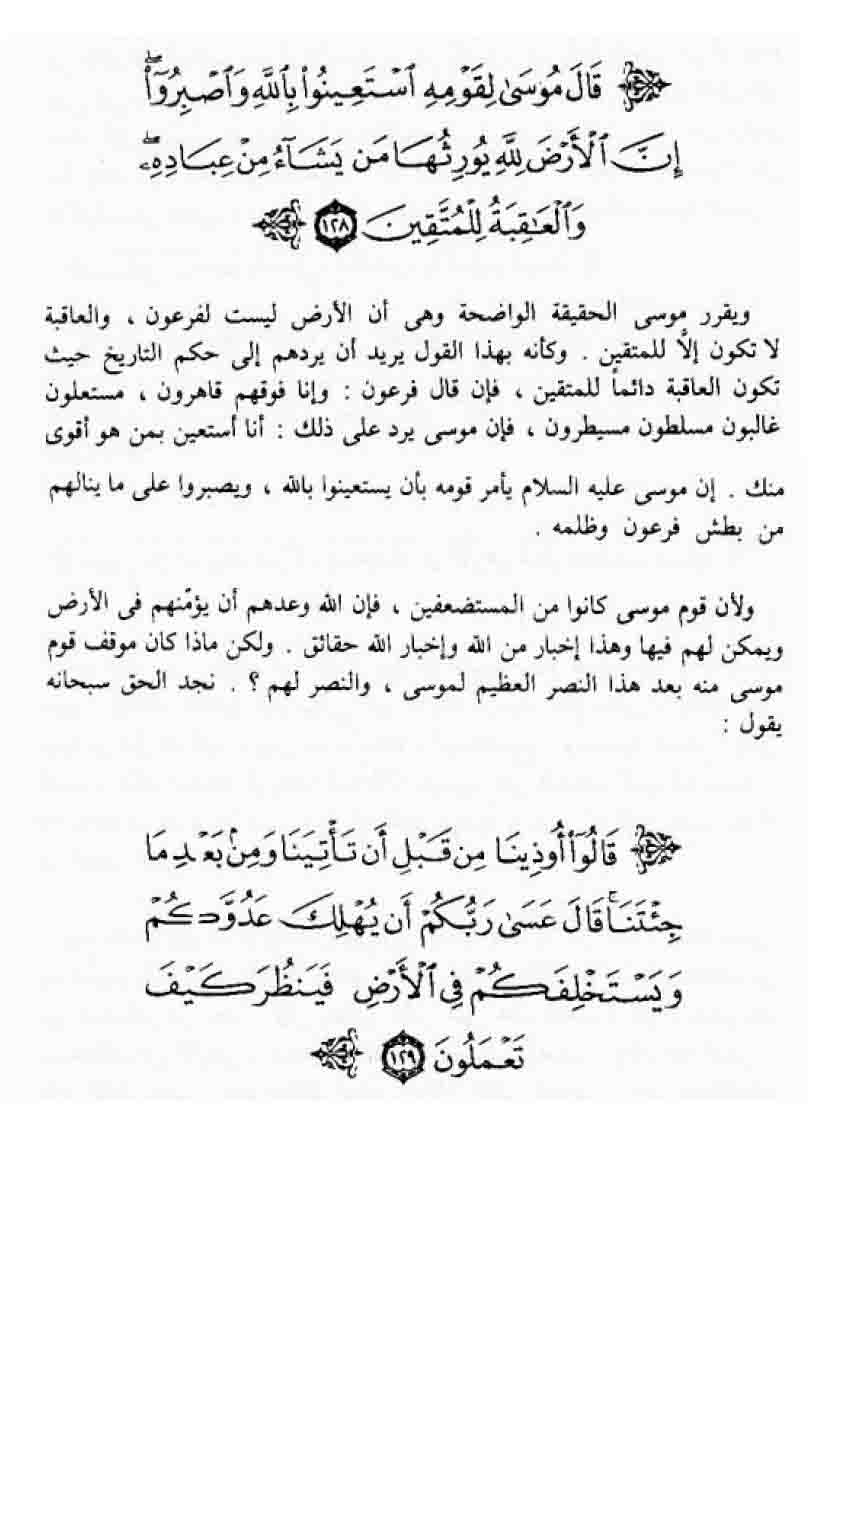 قَالَ مُوسَىٰ لِقَوْمِهِ ٱسْتَعِينُوا۟ بِٱللَّهِ وَٱصْبِرُوٓا۟ۖ
إِنَّ ٱلْأَرْضَ لِلَّهِ يُورِثُهَا مَن يَشَآءُ مِنْ عِبَادِهِۦۖ
وَٱلْعَٰقِبَةُ لِلْمُتَّقِينَ ١٢٨
ويقرر موسى الحقيقة الواضحة وهى أن الأرض ليست لفرعون ، والعاقبة
لا تكون إلّا للمتقين . وكأنه بهذا القول يريد أن يردهم إلى حكم التاريخ حيث
تكون العاقبة دائماً للمتقين ، فإن قال فرعون : وإنا فوقهم قاهرون ، مستعلون
غالبون مسلطون مسيطرون ، فإن موسى يرد على ذلك : أنا أستعين بمن هو أقوى
منك . إن موسى عليه السلام يأمر قومه بأن يستعينوا بالله ، ويصبروا على ما ينالهم
من بطش فرعون وظلمه .
ولأن قوم موسى كانوا من المستضعفين ، فإن الله وعدهم أن يؤمّنهم فى الأرض
ويمكن لهم فيها وهذا إخبار من الله وإخبار الله حقائق . ولكن ماذا كان موقف قوم
موسى منه بعد هذا النصر العظيم لموسى ، والنصر لهم ؟ . نجد الحق سبحانه
يقول :
قَالُوٓا۟ أُوذِينَا مِن قَبْلِ أَن تَأْتِيَنَا وَمِنۢ بَعْدِ مَا
جِئْتَنَاۚ قَالَ عَسَىٰ رَبُّكُمْ أَن يُهْلِكَ عَدُوَّكُمْ
وَيَسْتَخْلِفَكُمْ فِى ٱلْأَرْضِ فَيَنظُرَ كَيْفَ
تَعْمَلُونَ ١٢٩